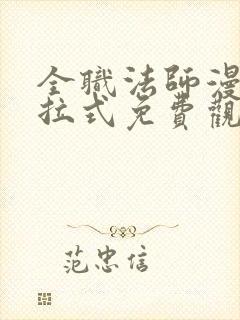 全職法師漫
拉式免費觀
范忠信